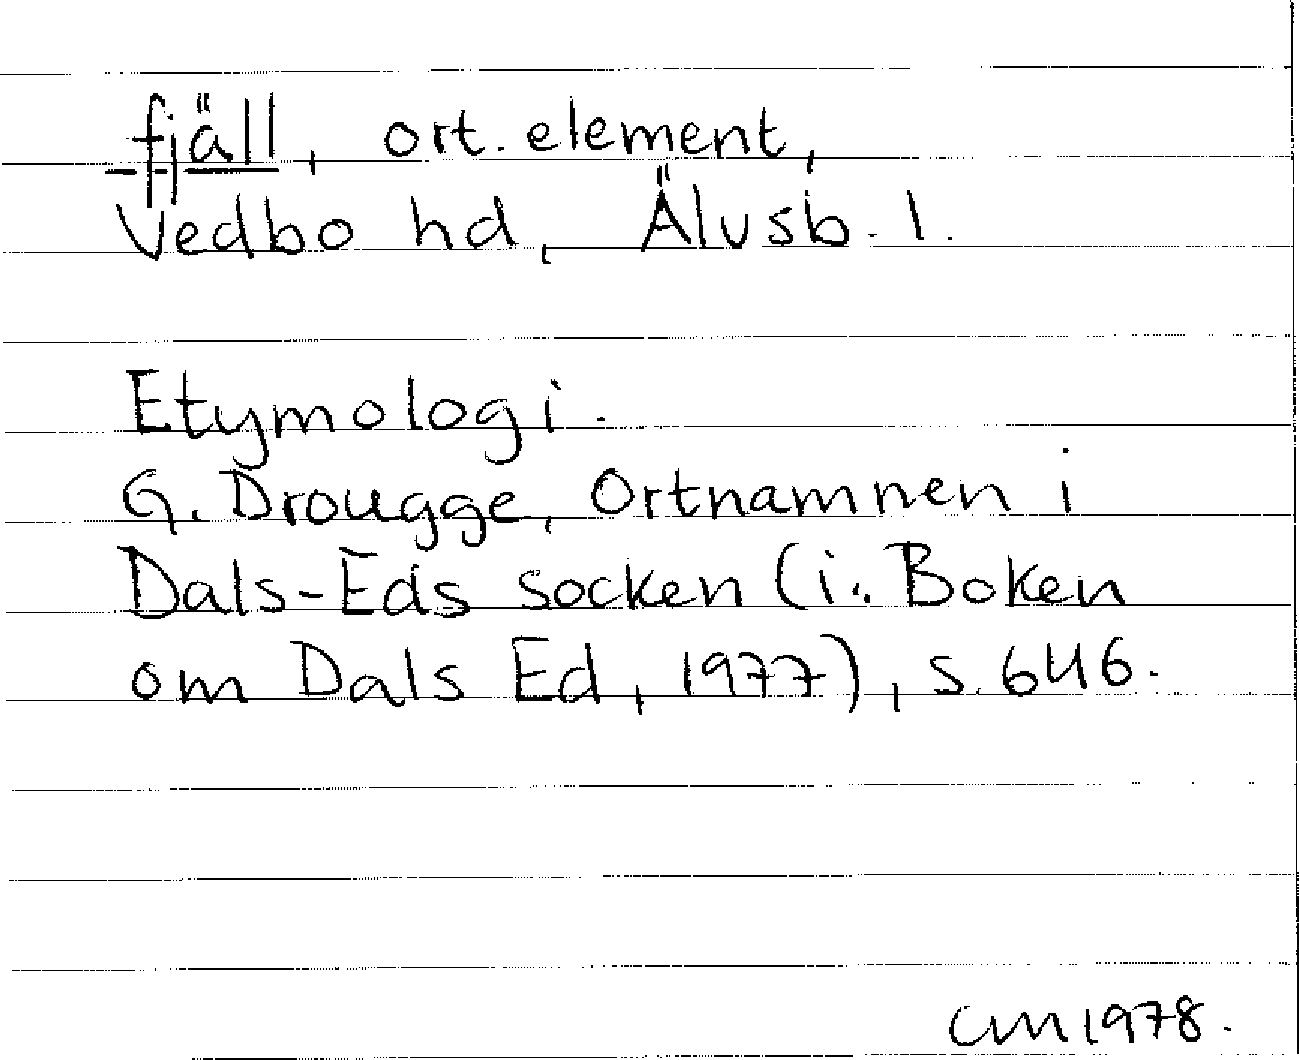 fjäll, ort. element,
Vedbo hd, Älvsb. l.
Etymologi.
G. Drougge, Ortnamnen i
Dals-Eds socken (i: Boken
om Dals Ed, 1977), s. 646.
CM 1978.